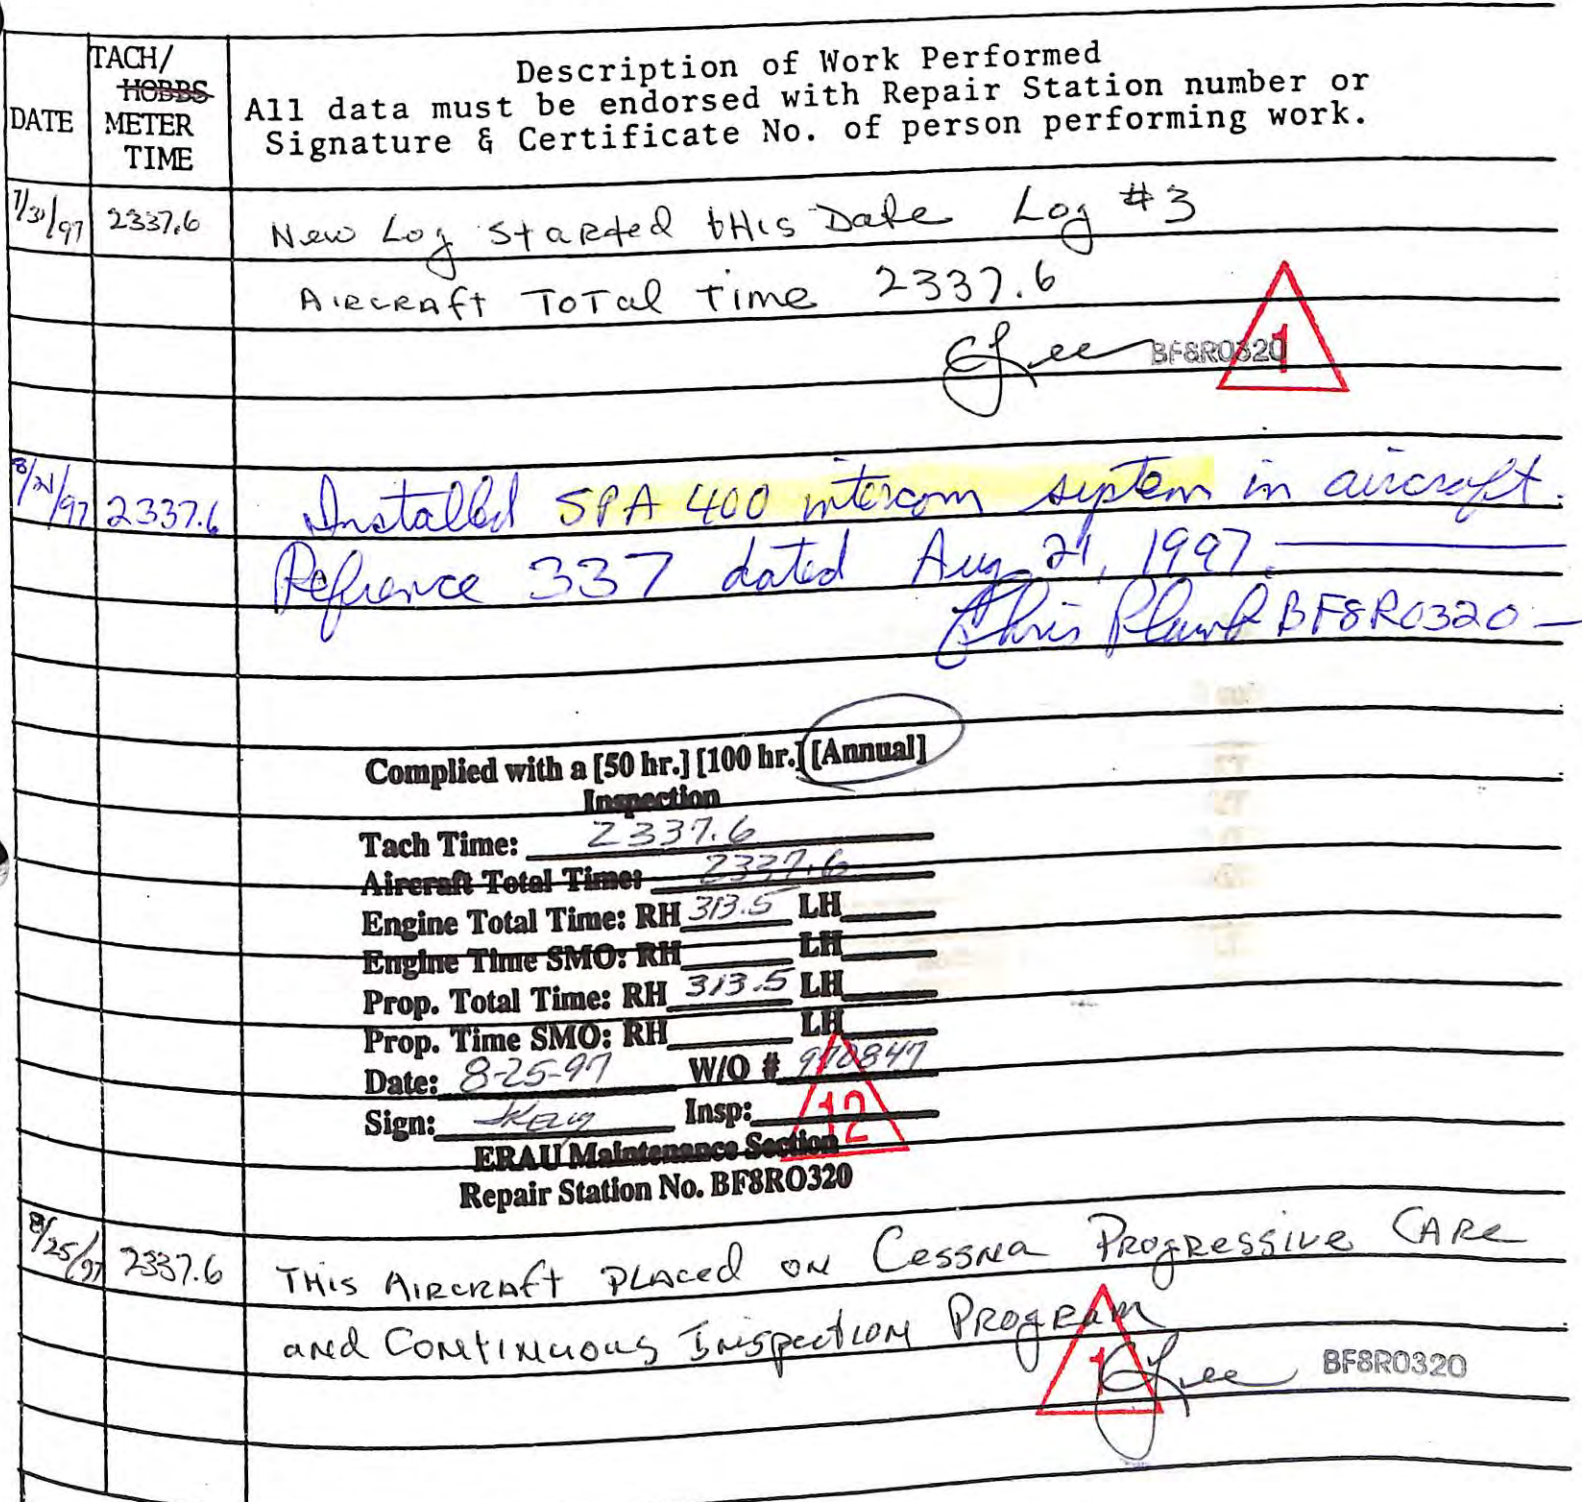 DATE
TACH/
HOBBS
METER
TIME
Description of Work Performed
All data must be endorsed with Repair Station number or
Signature & Certificate No. of person performing work.
7/31/97 2337.6 New Log Started this Date Log #3
Aircraft Total Time 2337.6
CLee BF8R0320 1
8/21/97 2337.6 Installed SPA 400 intercom system in aircraft.
Refrence 337 dated Aug 21, 1997.
Chris BF8R0320
Complied with a [50 hr.] [100 hr.] [Annual]
Inspection
Tach Time: 2337.6
Aircraft Total Time: 2337.6
Engine Total Time: RH 313.5 LH
Engine Time SMO: RH LH
Prop. Total Time: RH 313.5 LH
Prop. Time SMO: RH LH
Date: 8-25-97 W/O # 970847
Sign: Insp: 12
ERAU Maintenance Section
Repair Station No. BF8RO320
8/25/97 2337.6 This Aircraft Placed on Cessna Progressive Care
and Continuous Inspection Program
1 CLee BF8R0320